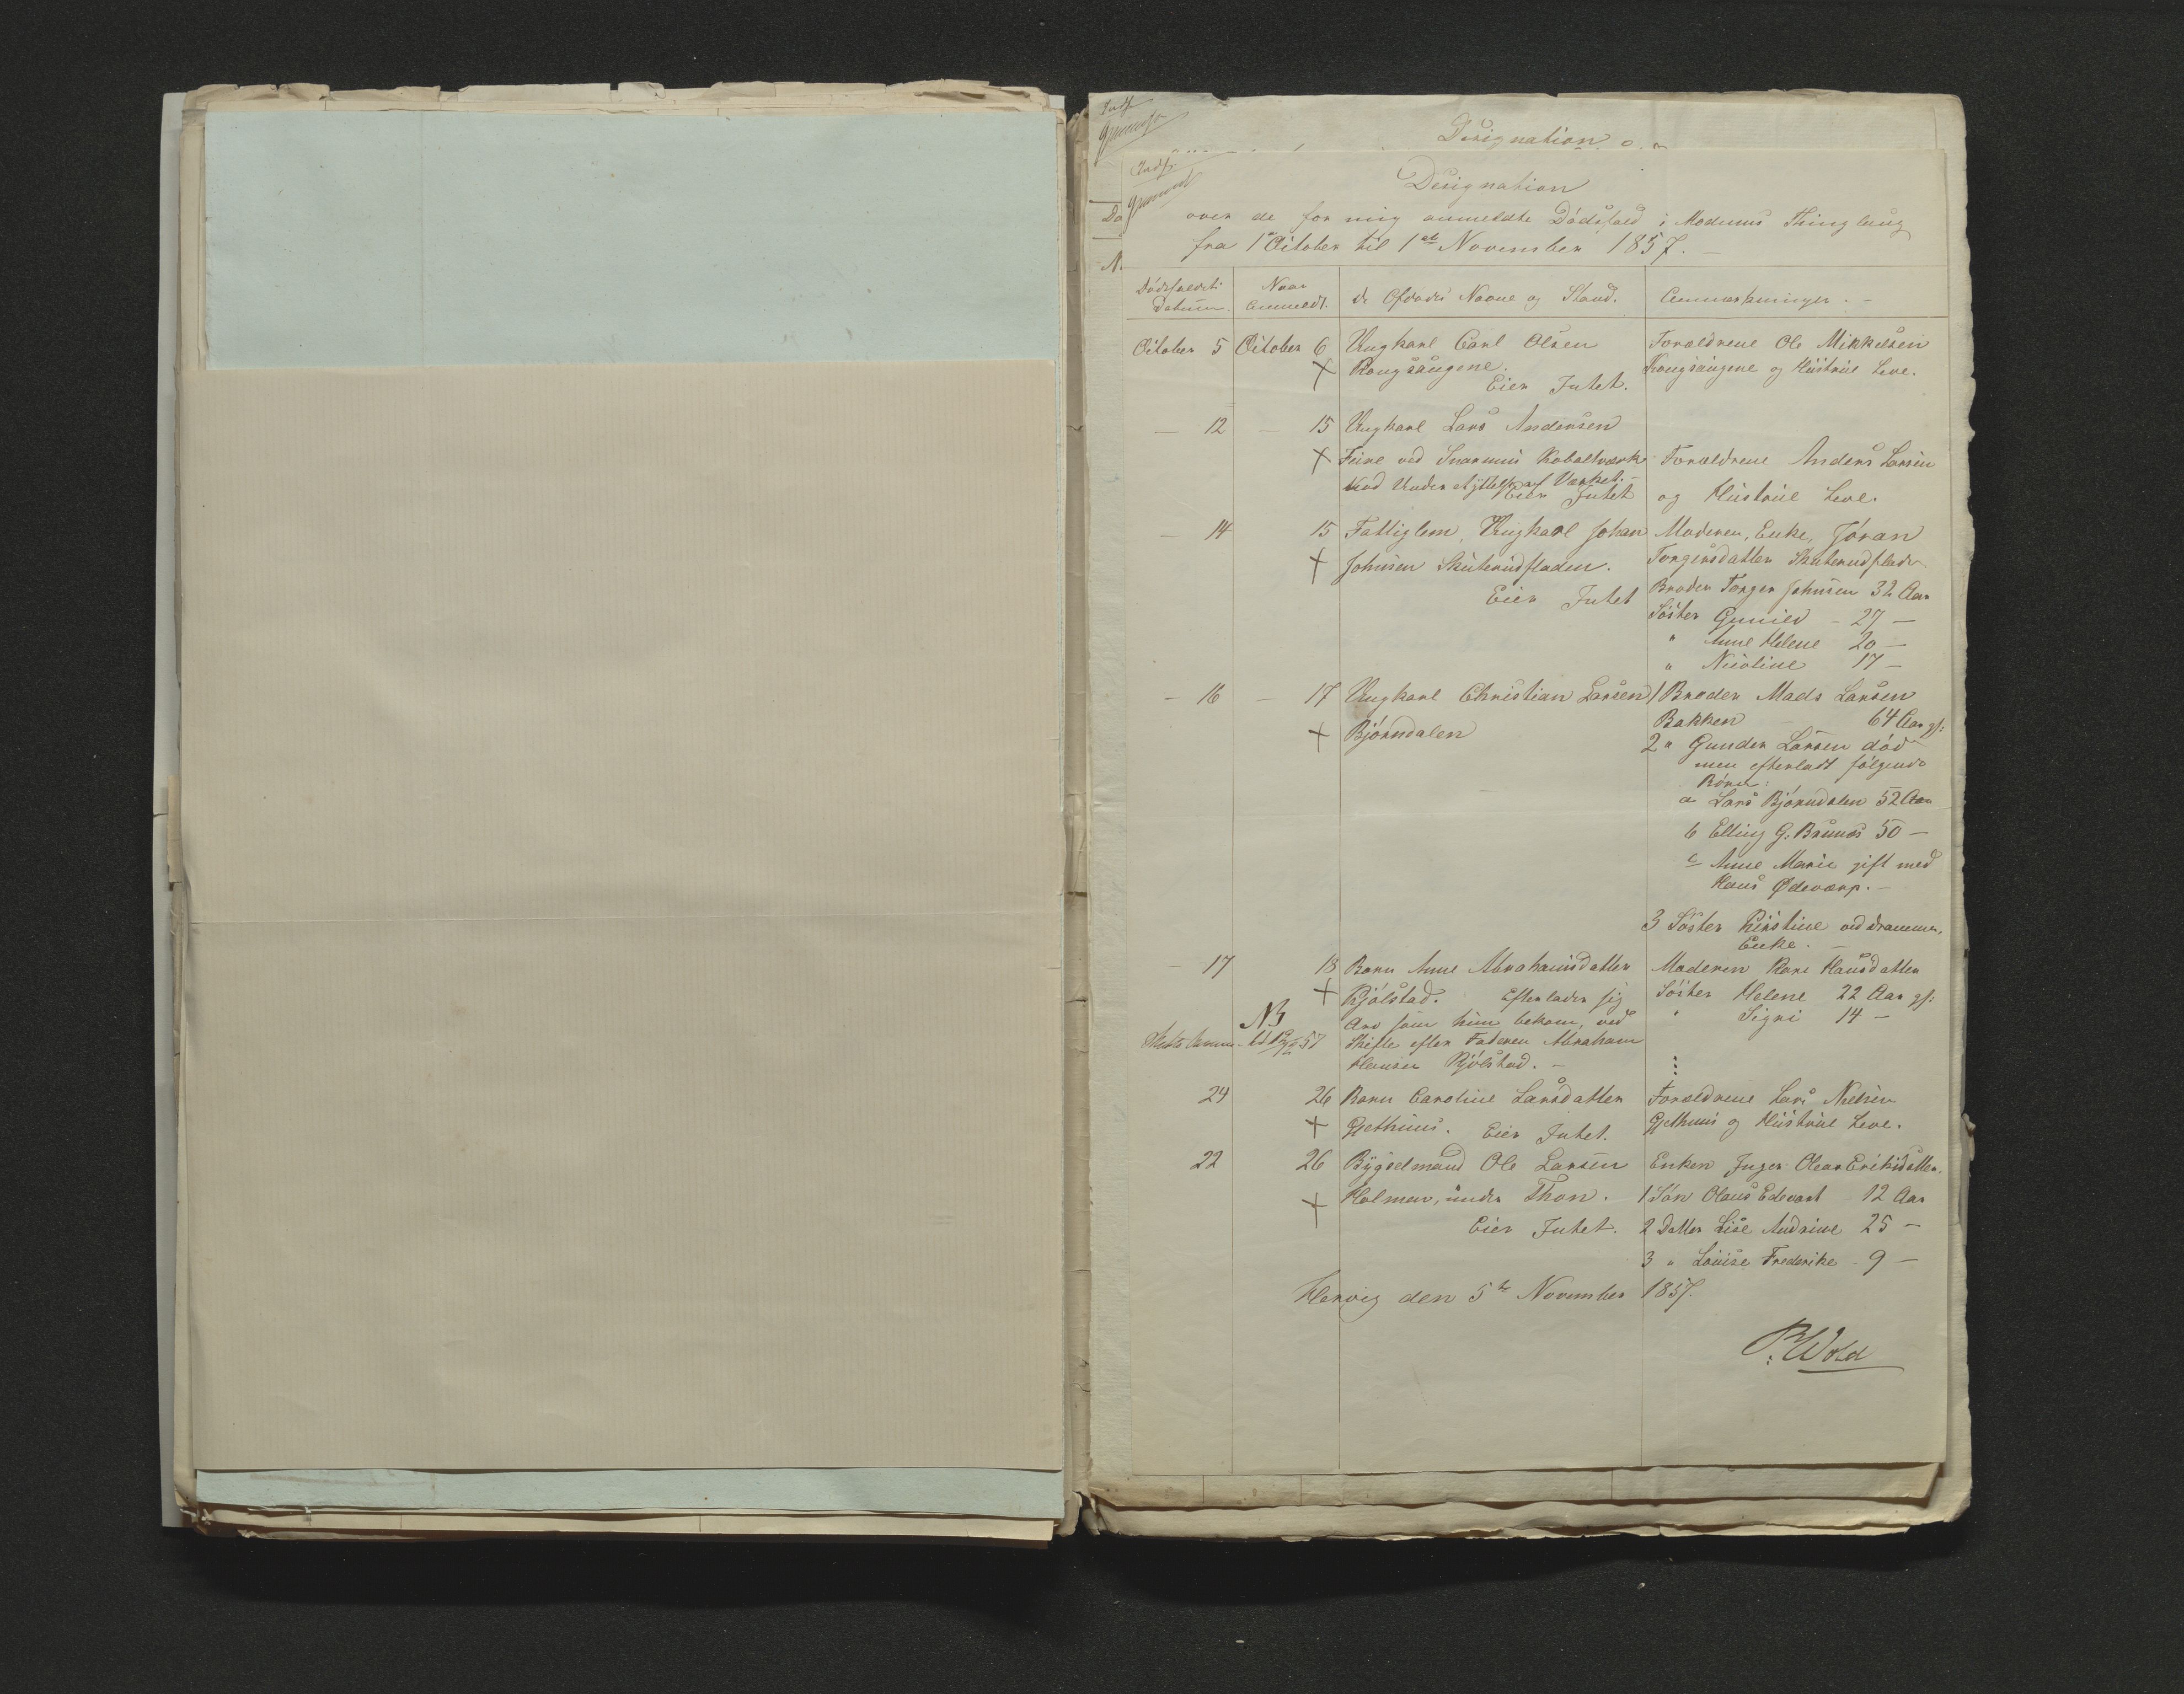 Indf.
Designation o
Indf.
Designation
over de for mig anmeldte Dödsfald i Modums Thinglaug
fra 1ste October til 1ste November 1857. -
Da
Dödsfaldets Datum.
Naar Anmeldt.
de Afdødes Navne og Stand.
Anmærkninger. -
October 5 October 6 Ungkarl Carl Olsen Forældrene Ole Mikkelsen
+ Kongsaugene. Kongsaugene og Hustrue Leve.
Eier Intet.
- 12 - 15 Ungkarl Lars Andersen
+ Feire ved Snarums Koboltværk Forældrene Anders Larsen
ved Understyttelse af Værket. -
Eier Intet og Hustrue Leve.
- 14 15 Fattiglem, Ungkarl Johan Moderen, Enke, Jöran
+ Johnsen Skuterudfladen. Torgersdatter Skuterudflade
Eier Intet Broder Torger Johnsen 32 Aar
Söster Gunild - 27 -
" Anne Helene 20 -
" Nicoline 17 -
- 16 - 17 Ungkarl Christian Larsen 1 Broder Mads Larsen
+ Bjørndalen Bakken - 64 Aar gf:
2 " Gunder Larsen död
men efterladt fölgende
Börn:
a Lars Bjørndalen 52 Aar
b Elling G. 50 -
c Anne Marie gift med
Hans Ødeværp. -
3 Söster Kirstine ved Drammen,
Enke. -
- 17 18 Barn Anne Abrahamsdatter Moderen Kari Hansdatter
+ Kjølstad. Efterlader sig Söster Helene 22 Aar gf:
NB Arv som hun bekom, ved " Signi 14 -
57 Skifte efter Faderen Abraham
Hansen Kjølstad. -
24 26 Barn Caroline Larsdatter Forældrene Lars Nielsen
+ Gjethuus. Eier Intet. Gjethuus og Hustrue Leve.
22 26 Bygselmand Ole Larsen Enken Inger Olea Eriksdatter.
+ Holmen, under Thon. 1 Sön Olaus Edvart - 12 Aar
Eier Intet. 2 Datter Lise Andrine 25 -
3 " Louise Frederike - 9 -
Hervig den 5te November 1857.
P. Wold